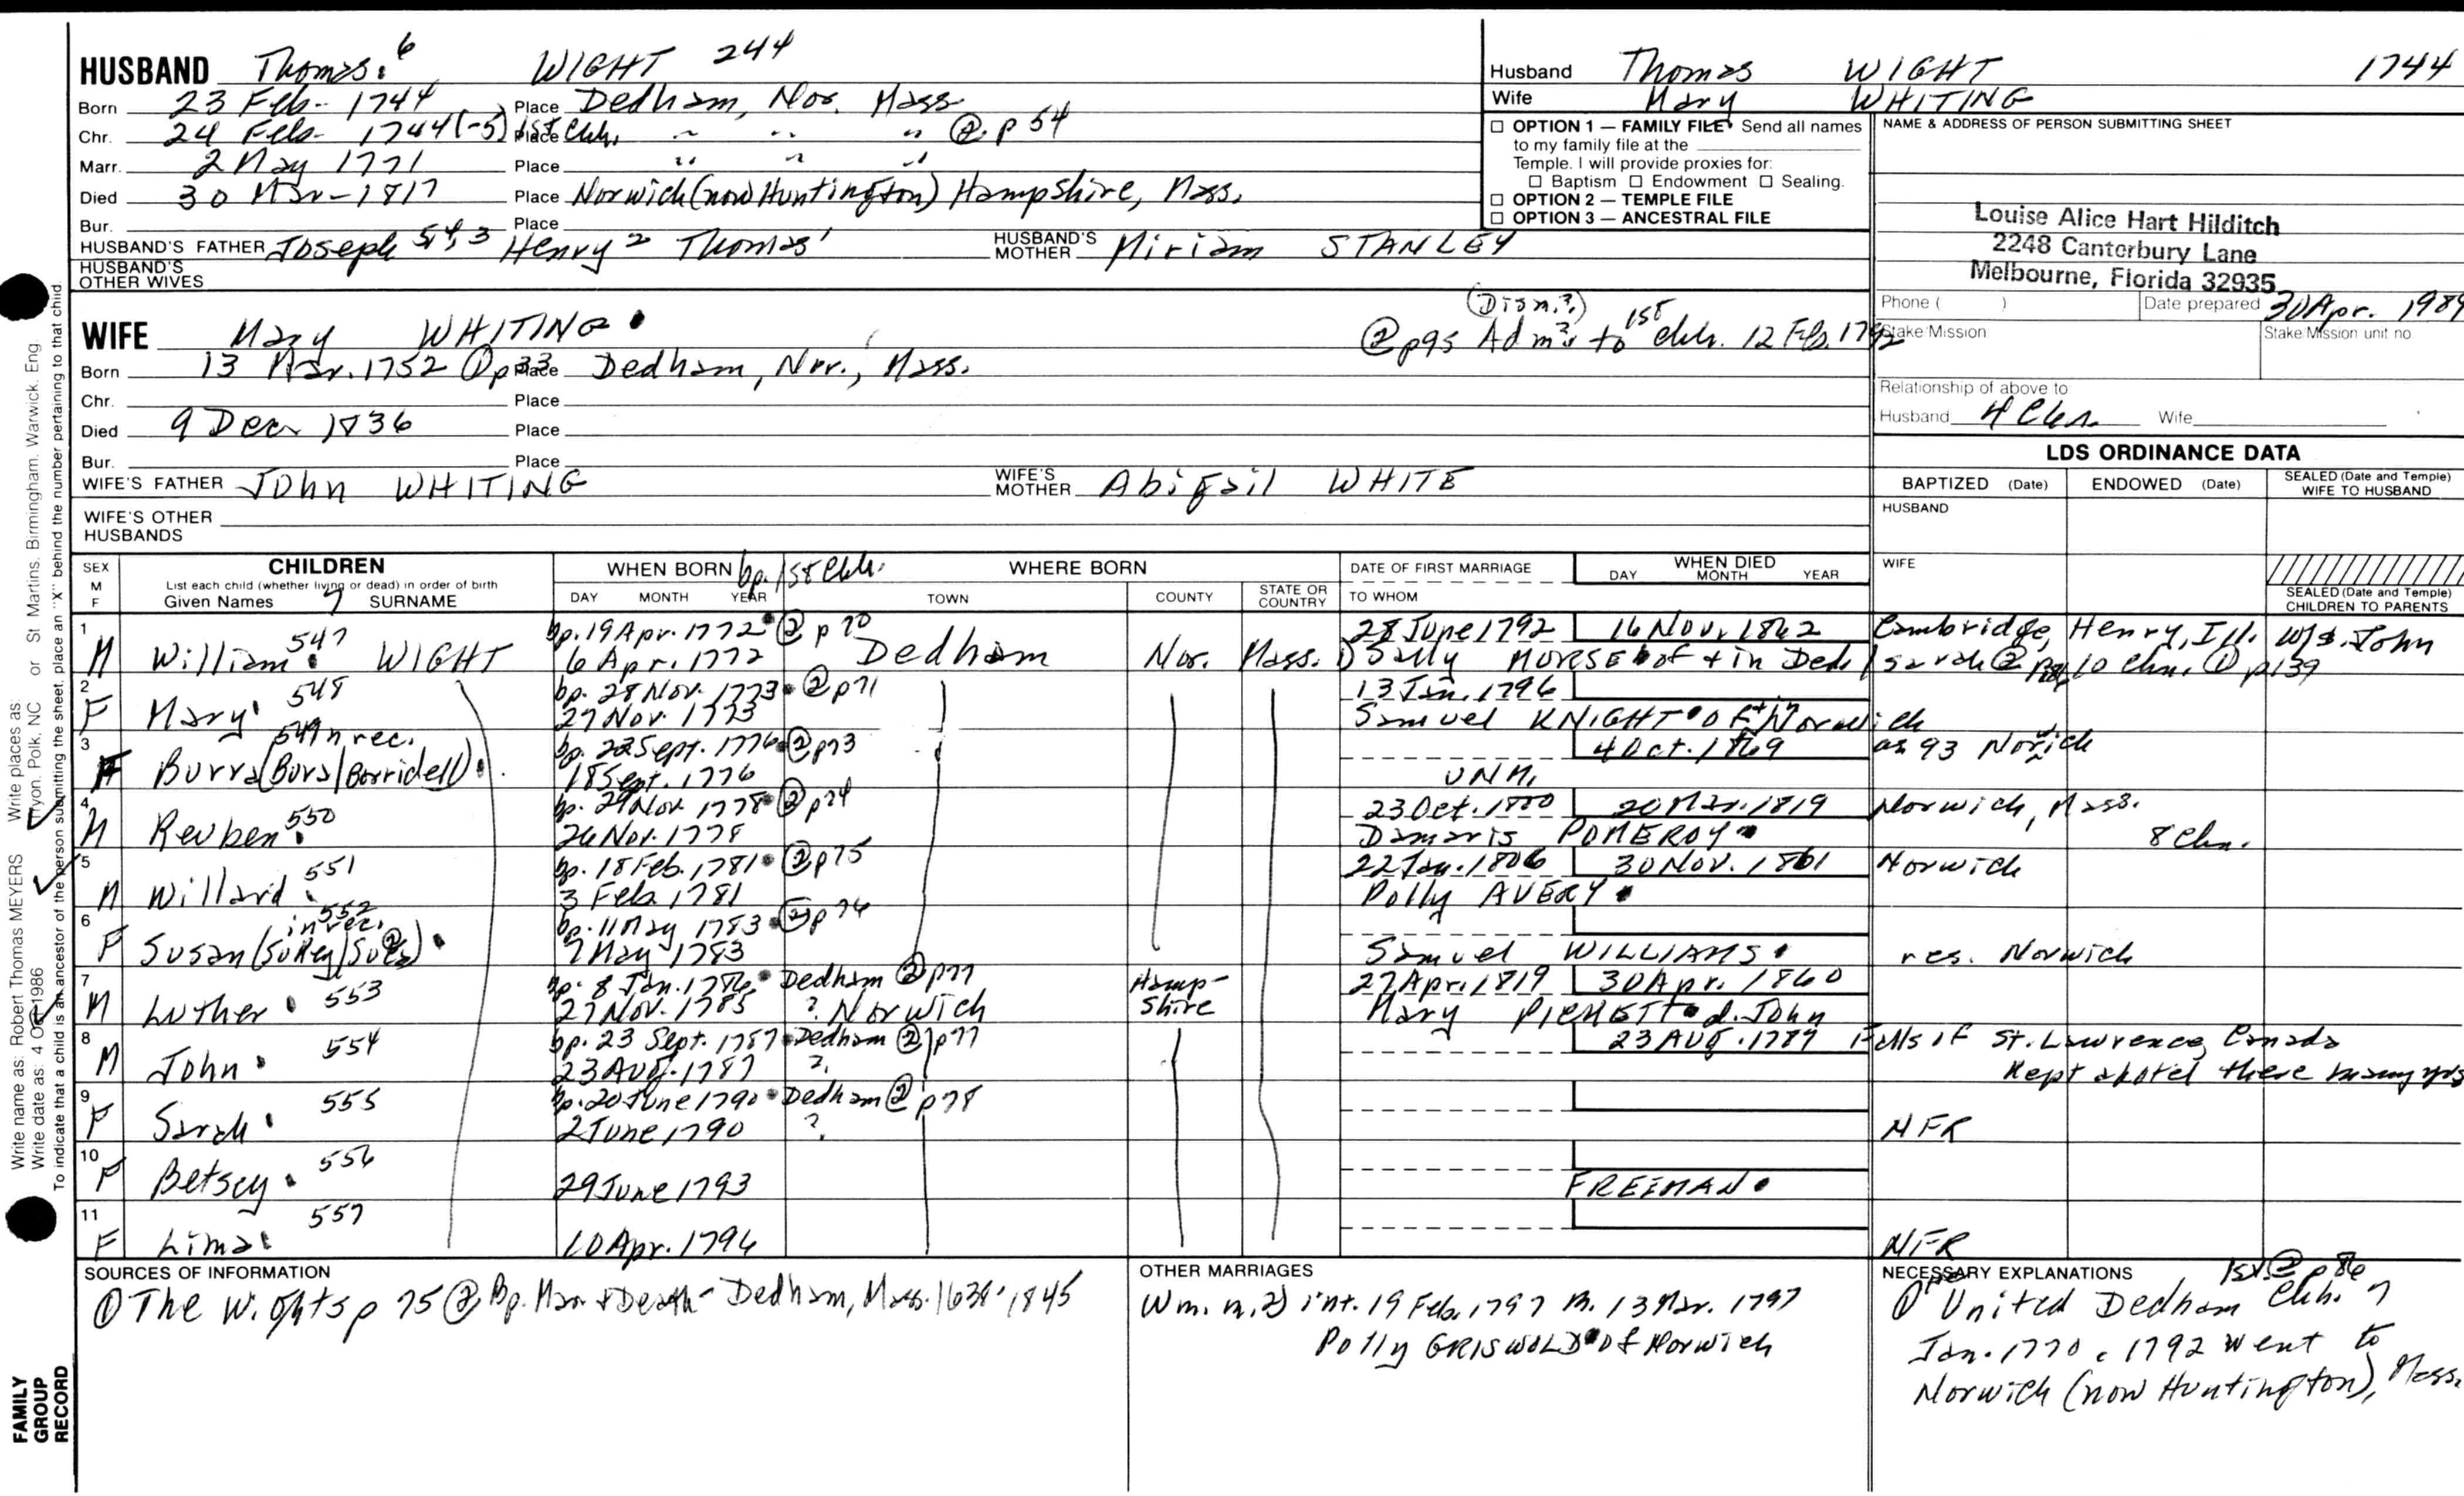 HUSBAND Thomas 6 WIGHT 244
Born 23 Feb. 1744 Place Dedham, Nor. Mass
Chr. 24 Feb. 1744(-5) Place 1st Chh. " " " @ p 54
Marr. 2 May 1771 Place " " "
Died 30 Mar 1817 Place Norwich (now Huntington) Hampshire, Mass.
Bur. Place
HUSBAND'S FATHER Joseph 5,4,3 Henry 2 Thomas 1 HUSBAND'S MOTHER Miriam STANLEY
HUSBAND'S OTHER WIVES
Husband Thomas WIGHT 1744
Wife Mary WHITING
☐ OPTION 1 — FAMILY FILE Send all names
to my family file at the
Temple. I will provide proxies for:
☐ Baptism ☐ Endowment ☐ Sealing.
☐ OPTION 2 — TEMPLE FILE
☐ OPTION 3 — ANCESTRAL FILE
NAME & ADDRESS OF PERSON SUBMITTING SHEET
Louise Alice Hart Hilditch
2248 Canterbury Lane
Melbourne, Florida 32935
Phone ( ) Date prepared 30 Apr. 1989
Stake/Mission Stake/Mission unit no
Relationship of above to
Husband Wife
WIFE Mary WHITING
② p95 Adm. to 1st Chh. 12 Feb. 1792
Born 13 Mar. 1752 ① p33 Place Dedham, Nor., Mass.
Chr. Place
Died 9 Dec 1836 Place
Bur. Place
WIFE'S FATHER John WHITING WIFE'S MOTHER Abigail WHITE
WIFE'S OTHER HUSBANDS
LDS ORDINANCE DATA
BAPTIZED (Date) ENDOWED (Date) SEALED (Date and Temple) WIFE TO HUSBAND
HUSBAND
WIFE
SEALED (Date and Temple) CHILDREN TO PARENTS
SEX M F CHILDREN List each child (whether living or dead) in order of birth Given Names 7 SURNAME
WHEN BORN bp. 1st Chh. DAY MONTH YEAR WHERE BORN TOWN COUNTY STATE OR COUNTRY
DATE OF FIRST MARRIAGE TO WHOM WHEN DIED DAY MONTH YEAR
1 547 bp. 19 Apr. 1772 ② p 70 28 June 1792 16 Nov. 1842 Cambridge, Henry, Ill. John
M William WIGHT 6 Apr. 1772 Dedham Nor. Mass. Sally MORSE of + in Ded. 10 Chn. ① p139
2 548 bp. 28 Nov. 1773 ② p71 13 Jan. 1796
F Mary 27 Nov. 1773 Samuel KNIGHT of Norwich
3 549 in rec. bp. 22 Sept. 1776 ② p73 4 Oct. 1869 ae 93 Norwich
F Burra (Bura/Borridell) 18 Sept. 1776 UNM.
4 550 bp. 29 Nov. 1778 ② p74 23 Oct. 1800 20 Mar. 1819 Norwich, Mass.
M Reuben 26 Nov. 1778 Damaris POMEROY 8 Chn.
5 551 bp. 18 Feb. 1781 ② p75 22 Jan. 1806 30 Nov. 1861 Norwich
M Willard 3 Feb 1781 Polly AVERY
6 552 in rec. bp. 11 May 1783 ② p76
F Susan 7 May 1783 Samuel WILLIAMS res. Norwich
7 553 bp. 8 Jan. 1786 Dedham ② p77 Hampshire 27 Apr. 1819 30 Apr. 1860
M Luther 27 Nov. 1785 ? Norwich Mary d. John
8 554 bp. 23 Sept. 1787 Dedham ② p77 23 Aug. 1787 Falls of St. Lawrence, Canada
M John 23 Aug. 1787 ? Kept a hotel there many yrs
9 555 bp. 20 June 1790 Dedham ② p78
F Sarah 2 June 1790 ? NFR
10 556
F Betsey 29 June 1793 FREEMAN
11 557
F Lima 10 Apr. 1796 NFR
SOURCES OF INFORMATION
① The Wights p 75 ② Bp. Mar & Death Dedham, Mass. 1638-1845
OTHER MARRIAGES
Wm. m. 2) int. 19 Feb. 1797 m. 13 Mar. 1797
Polly GRISWOLD of Norwich
NECESSARY EXPLANATIONS 1st ② p86
① United Dedham Chh. 7
Jan. 1770, 1792 went to
Norwich (now Huntington), Mass.
Write name as: Robert Thomas MEYERS Write places as: Tryon, Polk, NC or St Martins, Birmingham, Warwick, Eng
Write date as: 4 Oct 1986
To indicate that a child is an ancestor of the person submitting the sheet, place an "X" behind the number pertaining to that child.
FAMILY
GROUP
RECORD